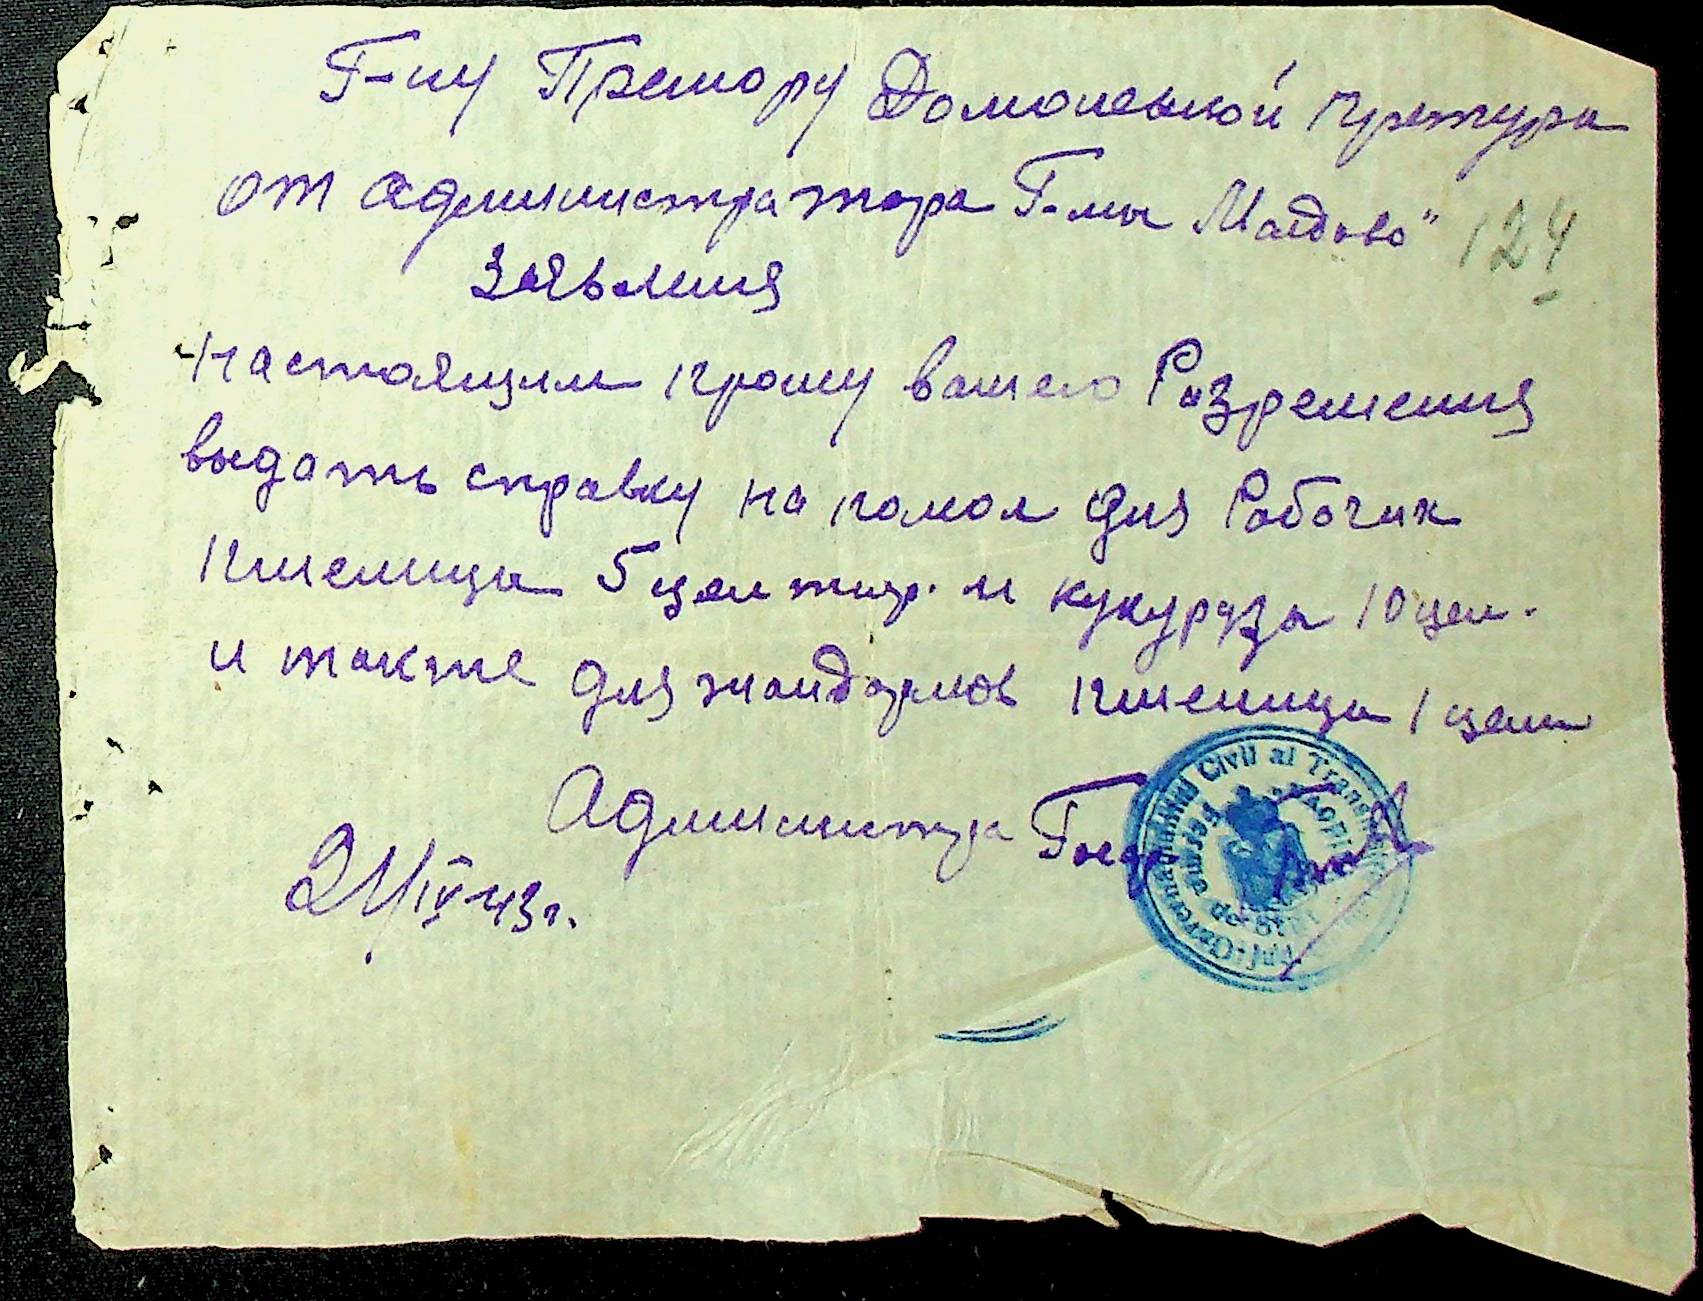 Г-ну Претору Доманевкой претуры
от администратора Г-мы "Молдова"
124
Заявления
Настоящим прошу вашего Разрешения
выдать справку на помол для Рабочих
пшеницы 5 центнр. и кукурузы 10 цен.
и также для жандармов пшеницы 1 цен
Администра
21/IV-43 г.
Guvernamântul Civil al Trans
Ferma
de Stat